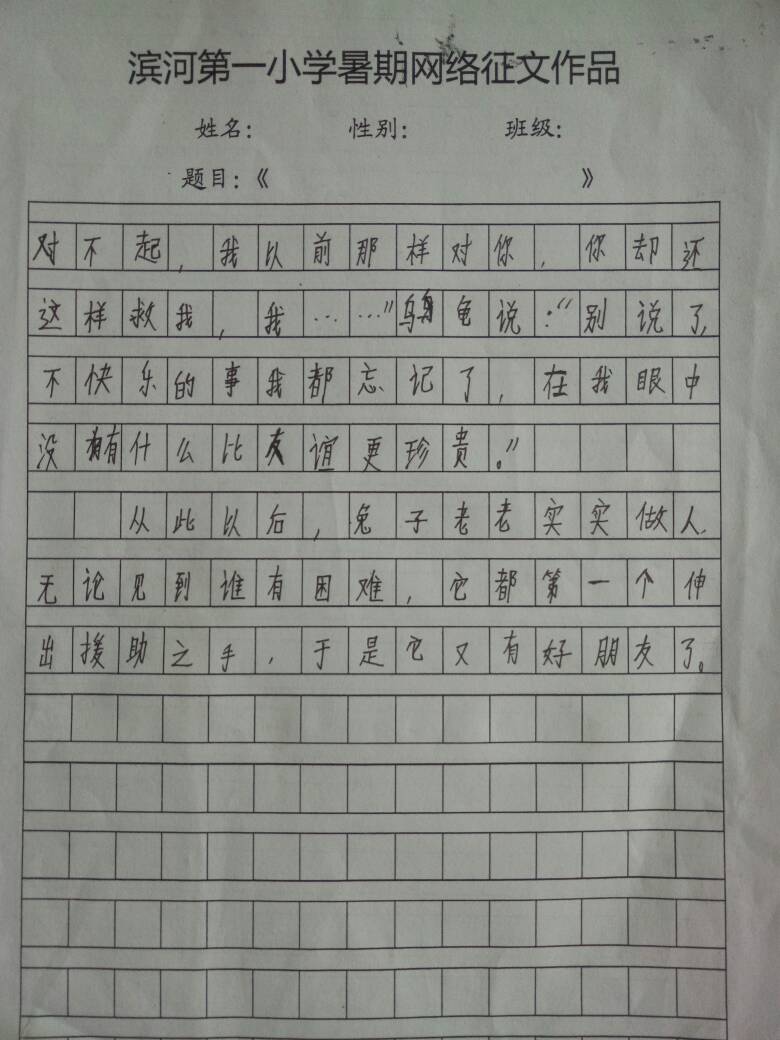 滨河第一小学暑期网络征文作品
姓名: 性别: 班级:
题目:《 》
对不起,我以前那样对你,你却还
这样救我,我……”乌龟说:“别说了,
不快乐的事我都忘记了,在我眼中
没有什么比友谊更珍贵。”
从此以后,兔子老老实实做人.
无论见到谁有困难,它都第一个伸
出援助之手,于是它又有好朋友了。